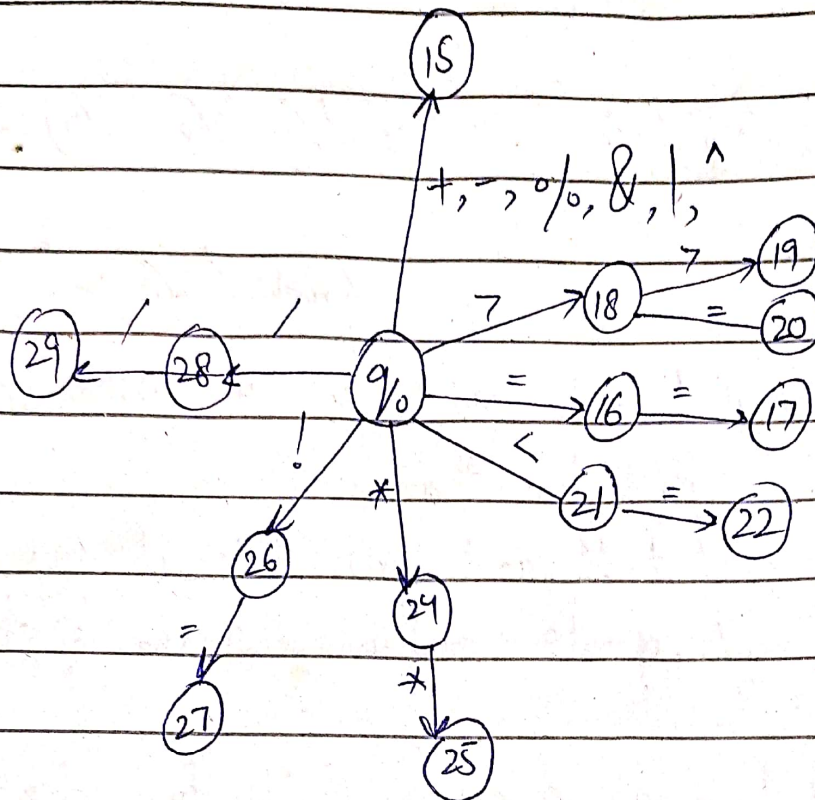 15
+, -, %, &, |, ^
> 18 > 19
= 20
29 / 28 / q0 = 16 = 17
< 21 = 22
! 26 = 27
* 24 * 25